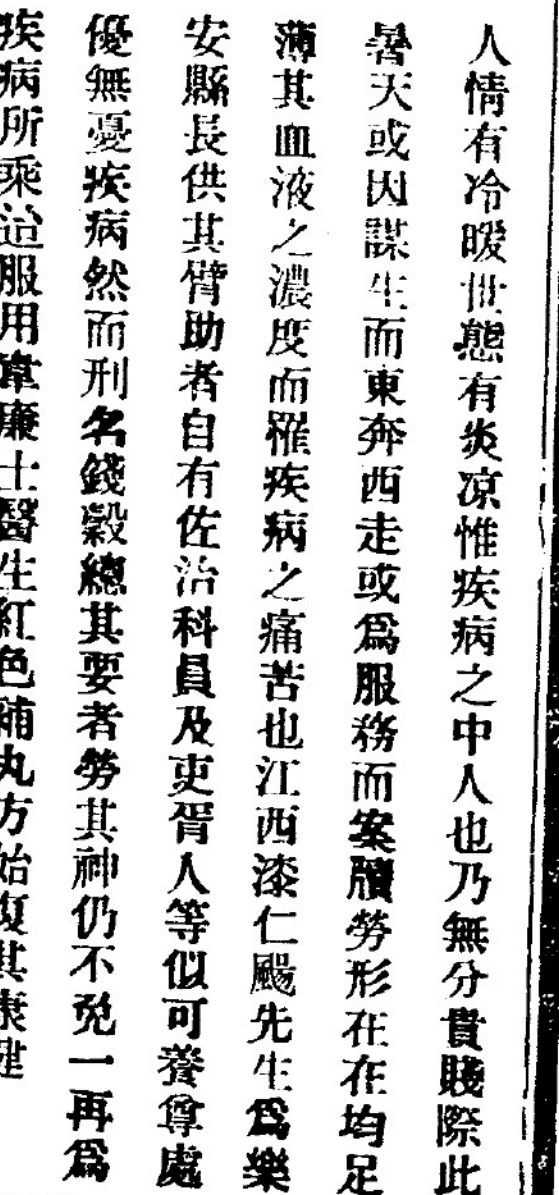 人情有冷暖世態有炎凉惟疾病之中人也乃無分貴賤際此
暑天或因謀生而東奔西走或爲服務而案牘勞形在在均足
薄其血液之濃度而罹疾病之痛苦也江西漆仁颺先生爲樂
安縣長供其臂助者自有佐治科員及吏胥人等似可養尊處
優無憂疾病然而刑名錢穀總其要者勞其神仍不免一再爲
疾病所乘迨服用韋廉士醫生紅色補丸方始復其康健